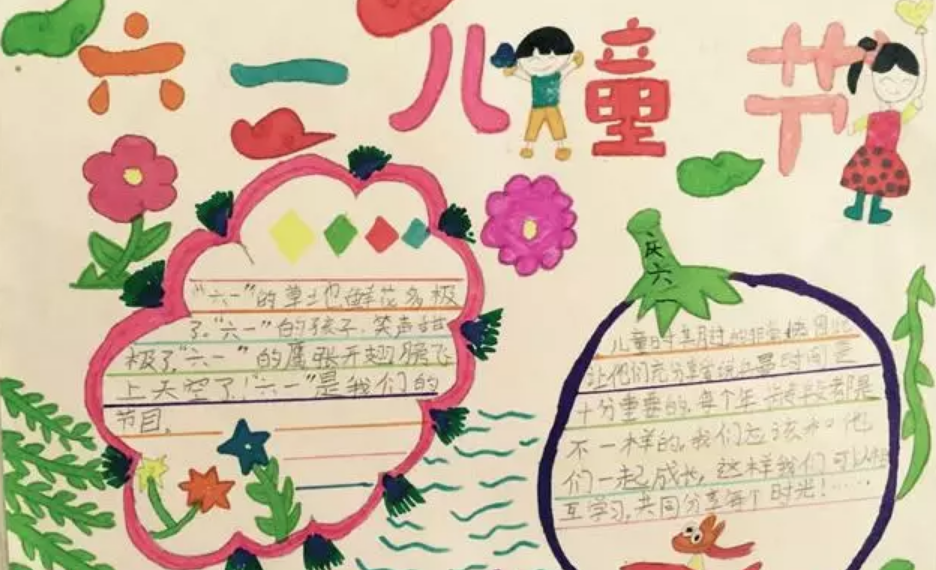 六一儿童节
"六一"的草地鲜花多极
了。"六一"的孩子,笑声甜
极了"六一"的鹰张开翅膀飞
上天空了!"六一"是我们的
节目。
庆六一
儿童时期过的非常快
让他们充分享受 时间是
十分重要的。每个年 都是
不一样的,我们应该和他
们一起成长,这样我们可
互学习,共同分享每个时光!……